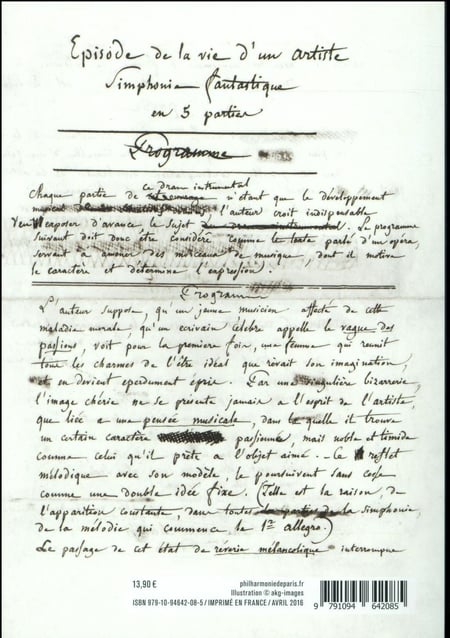 Episode de la vie d'un artiste
Simphonie fantastique
en 5 parties
Programme
ce drame instrumental
Chaque partie de n'étant que le développement
musical l'auteur croit indispensable
d'exposer d'avance le sujet . Le programme
suivant doit donc être considéré comme le texte parlé d'un opéra,
servant à amener des morceaux de musique, dont il motive
le caractère et détermine l'expression.
Programme
L'auteur suppose, qu'un jeune musicien affecté de cette
maladie morale, qu'un ecrivain célèbre appelle le vague des
passions, voit pour la première fois, une femme qui reunit
tous les charmes de l'être idéal que rêvait son imagination,
et en devient eperdument épris. Par une singulière bizarrerie,
l'image chérie ne se présente jamais a l'esprit de l'artiste,
que liée a une pensée musicale, dans laquelle il trouve
un certain caractère passionné, mais noble et timide
comme celui qu'il prête a l'objet aimé. Ce reflet
mélodique avec son modèle, le poursuivent sans cesse
comme une double idée fixe. (Telle est la raison, de
l'apparition constante, dans toutes les parties de la simphonie,
de la mélodie qui commence le 1er allegro.)
Le passage de cet état de rêverie mélancolique interrompue
13,90 €
philharmoniedeparis.fr
Illustration © akg-images
ISBN 979-10-94642-08-5 / IMPRIMÉ EN FRANCE / AVRIL 2016
9 791094 642085